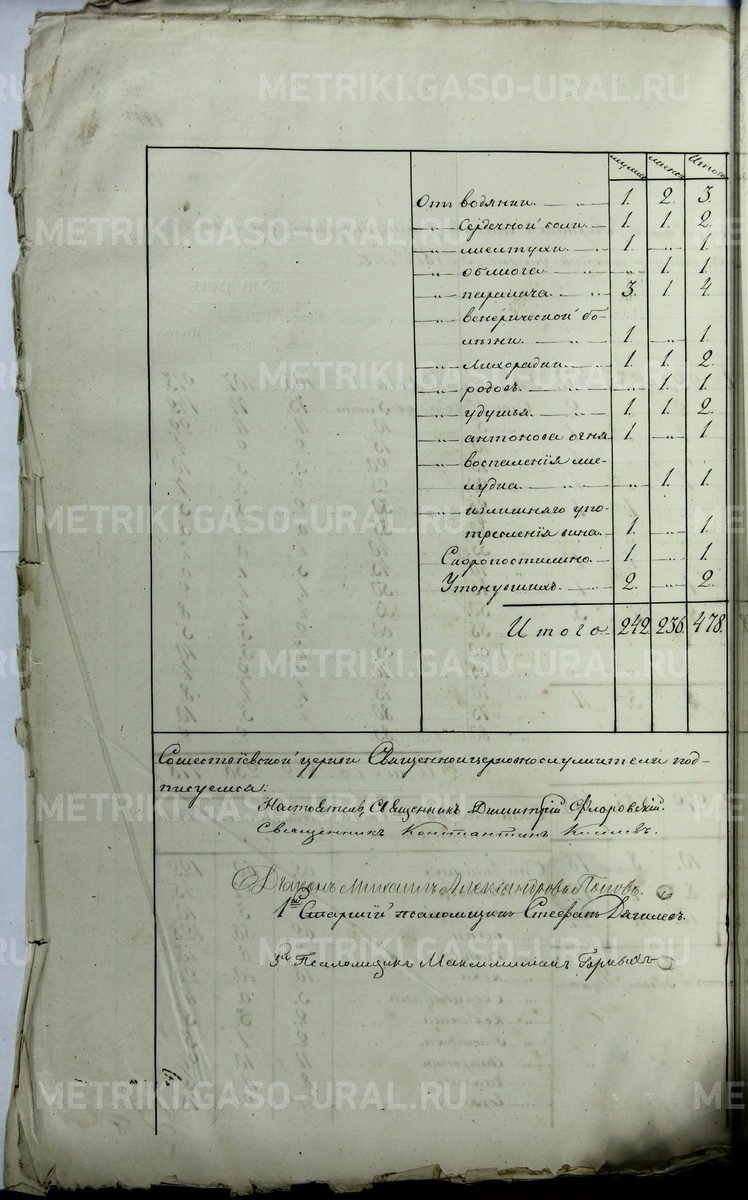 METRIKI.GASO-URAL.RU
мужес женск Итого
Отъ водянки. 1. 2. 3.
„ Сердечной боли 1. 1. 2.
„ желтухи 1. „ 1.
„ ожога „ 1. 1.
„ паралича 3. 1. 4.
„ венерической бо-
лѣзни. 1. „ 1.
„ Лихорадки. 1. 1. 2.
„ родовъ. „ 1. 1.
„ удушья. 1. 1. 2.
„ антонова огня 1. „ 1.
„ воспаленія же-
лудка. „ 1. 1.
„ излишняго упо-
требленія вина. 1. „ 1.
Скоропостижно. 1. „ 1.
Утонувшихъ. 2. „ 2.
Итого 242. 236. 478.
церкви Священноицерковнослужители под-
писуемся:
Настоятель, Священникъ Димитрій Флоровскій.
Священникъ Константинъ
Діаконъ Михаилъ Александровъ Поповъ.
1й Старшій псаломщикъ Стефанъ Дягилевъ.
3й Псаломщикъ Максимиліанъ